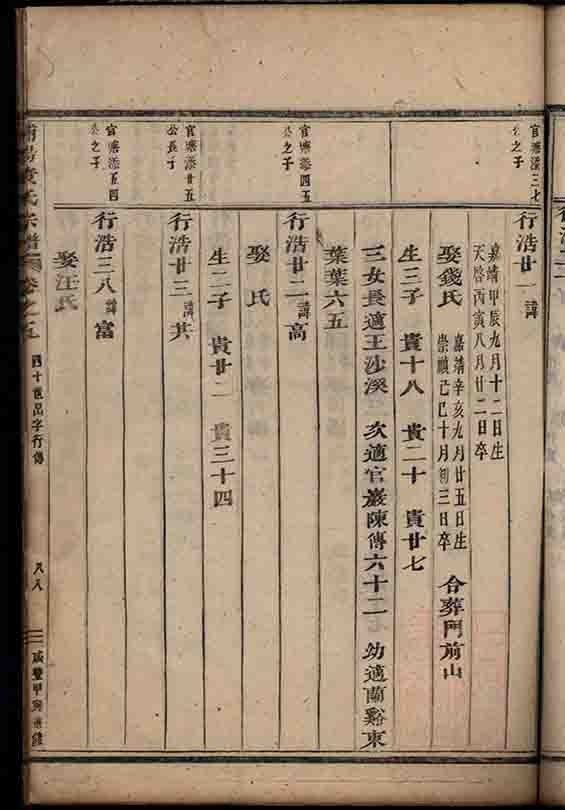 官巖漆三七
公之子
行浩廿一諱
嘉靖甲辰九月十二日生
天啓丙寅八月廿二日卒
娶錢氏
嘉靖辛亥九月廿五日生
崇禎己巳十月初三日卒
合葬門前山
生三子 貴十八 貴二十 貴廿七
三女長適王沙溪 次適官巖陳傳六十二 幼適蘭谿東
葉葉六五
官巖漆四五
公之子
行浩廿二諱高
娶 氏
生二子 貴廿二 貴三十四
官巖漆廿五
公長子
行浩廿三諱共
官巖漆五四
公之子
行浩三八諱富
娶汪氏
氏宗譜 卷之五 四十世浩字行傳 八八 咸豐甲寅重修